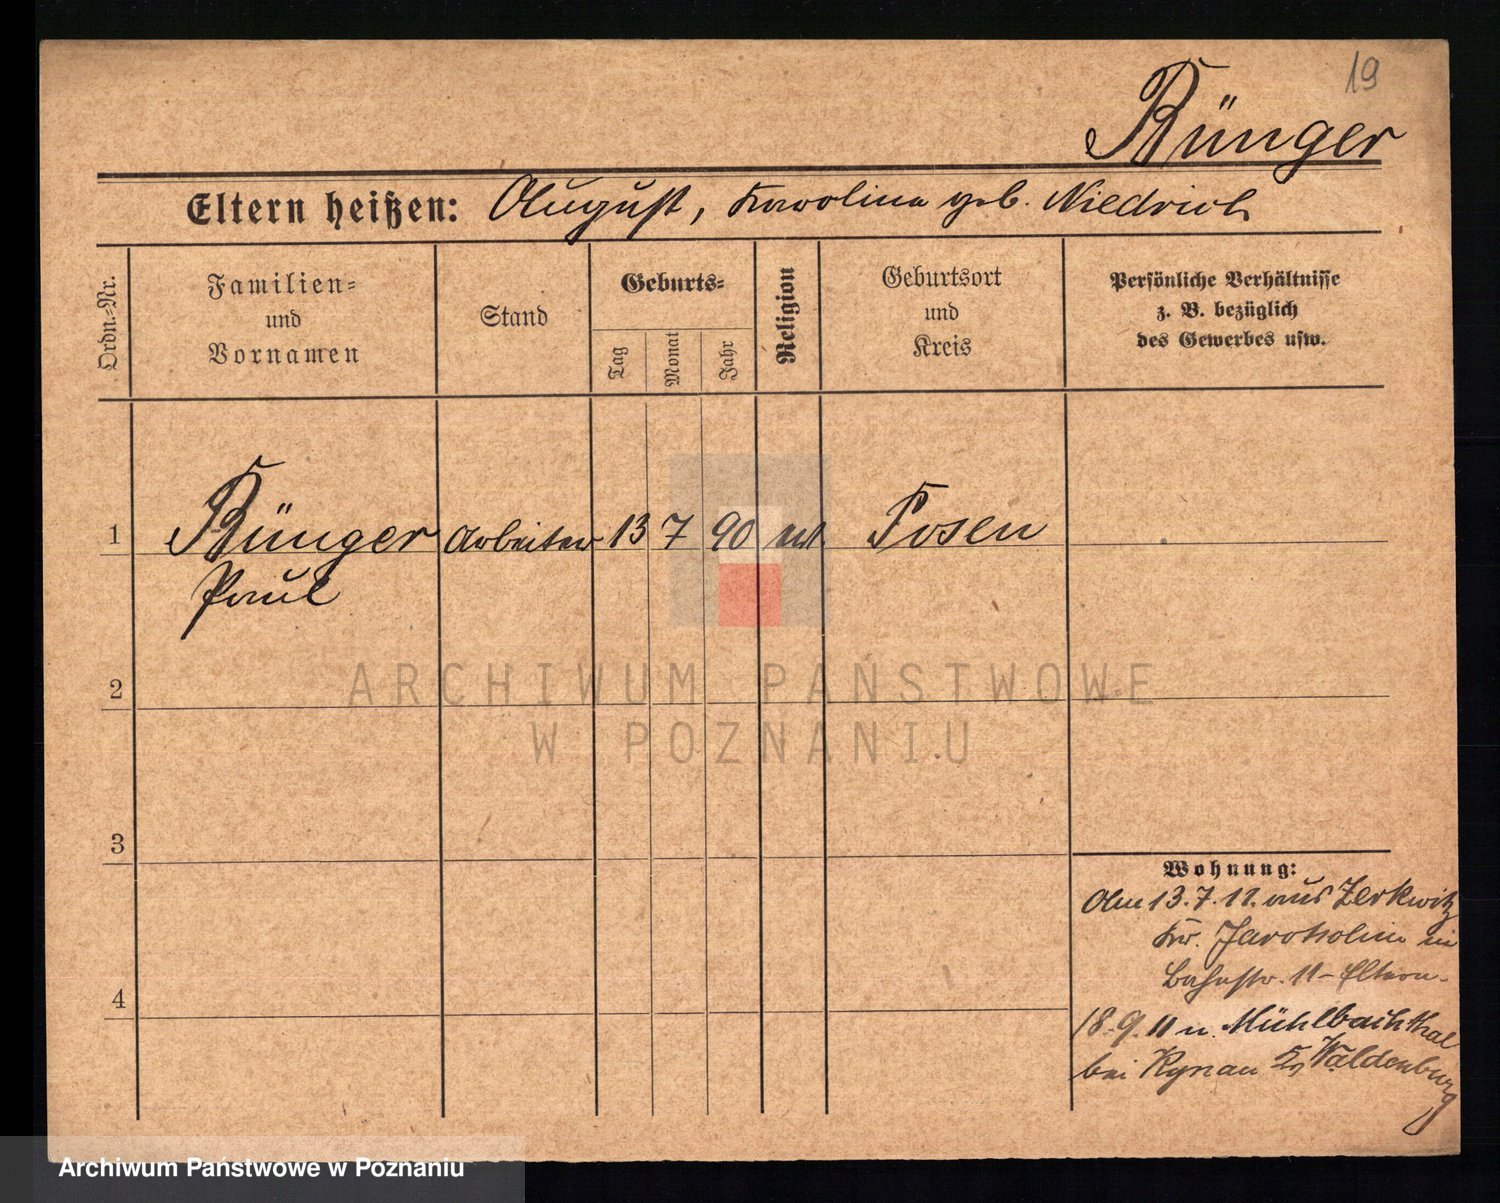 19
Bünger
Eltern heißen: August, Karolina geb. Niedrich
Ordn.-Nr.
Familien-
und
Vornamen
Stand
Geburts-
Tag
Monat
Jahr
Religion
Geburtsort
und
Kreis
Persönliche Verhältnisse
z. B. bezüglich
des Gewerbes usw.
1 Bünger Arbeiter 13 7 90 Posen
Paul
2
3
4
Wohnung:
13.7.11. aus Zerkwitz
Kr. Jarotschin in
Bahnstr. 11 - Eltern.
18.9.11 n. Mühlbachthal
bei Kynau Waldenburg
ARCHIWUM PAŃSTWOWE
W POZNANIU
Archiwum Państwowe w Poznaniu